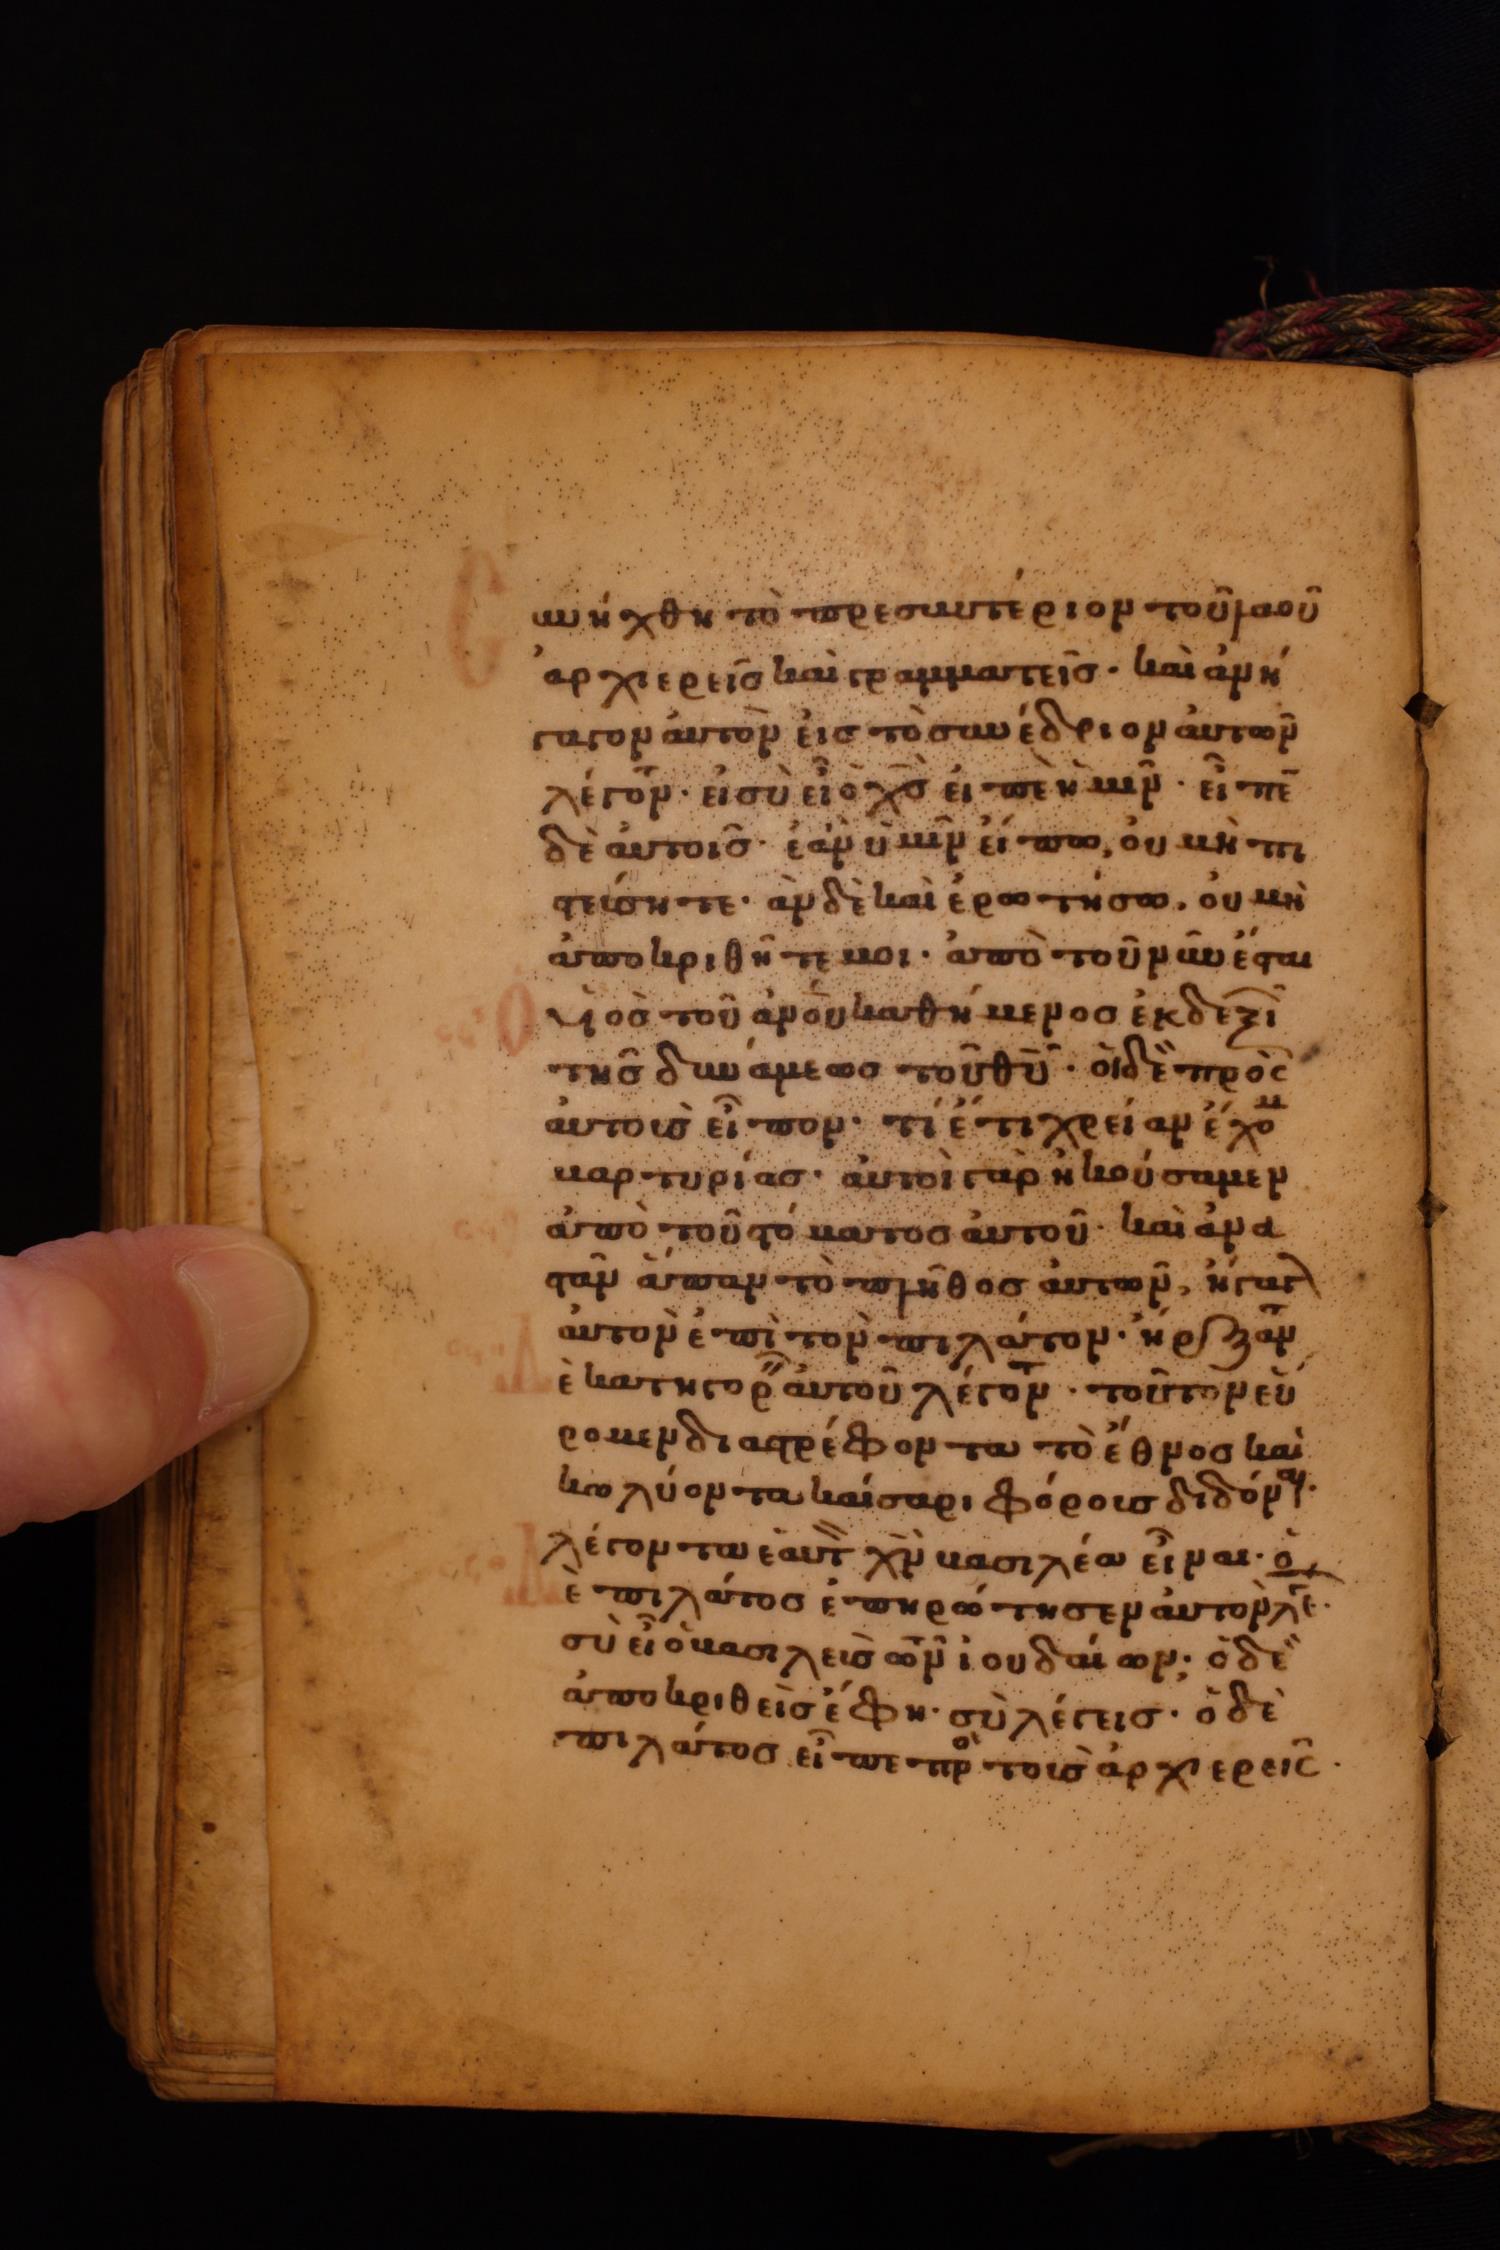 υνήχθη τὸ πρεσβυτέριον τοῦ λαοῦ
ἀρχιερεῖσ καὶ γραμματεῖσ· καὶ ἀνή
γαγον ἀυτὸν ἐισ τὸ συνέδριον ἀυτῶν
λέγοντ· εἰ σὺ εἶ ὁ χ̅σ̅ ἐιπὲ ἡμῖν· εἶπε
δὲ ἀυτοῖσ· ἐὰν ὑμῖν εἴπω, ὀυ μὴ πι
στεύσητε· ὰν δὲ καὶ ἐρωτήσω, ὀυ μὴ
ἀποκριθῆτε μοι· ἀπὸ τοῦ νῦν ἔσται
ὓὸσ τοῦ ἀνο̅υ̅ καθήμενοσ ἐκ δεξι
τῆσ δυνάμεωσ τοῦ θ̅υ̅· ὁι δὲ πρὸσ
ἀυτοὺσ εἶπον· τί ἔτι χρείαν ἔχομ
μαρτυρίασ· ἀυτοὶ γὰρ ἠκούσαμεν
ἀπὸ τοῦ στόματοσ ἀυτοῦ· καὶ ἀνα
στὰν ἅπαν τὸ πλῆθοσ ἀυτῶν, ἤγαγ
ἀυτὸν ἐπὶ τὸν πιλάτον· ἤρξαντ
ὲ κατηγορ ἀυτοῦ λέγοντ· τοῦτον εὕ
ρομεν διαστρέφοντα τὸ ἔθνοσ καὶ
κωλύοντα καίσαρι φόρουσ διδόναι·
λέγοντα ἑαυτ χ̅ν̅ βασιλέα εἶναι· ὁ
ὲ πιλάτοσ ἐπηρώτησεν ἀυτὸν λέγ·
σὺ εἶ ὁ βασιλεὺσ τῶν ἰουδαίων; ὁ δὲ
ἀποκριθεὶσ ἔφη· σὺ λέγεισ· ὁ δὲ
πιλάτοσ εἶπε πρὸ τοὺσ ἀρχιερεῖσ·